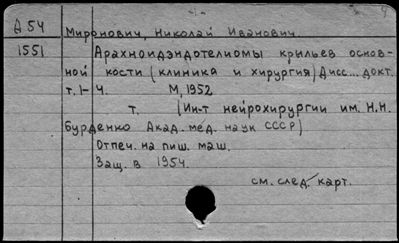 Д 54
Миронович, Николай Иванович.
1551
Арахноидэндотелиомы крыльев основ-
ной кости (клиника и хирургия) Дисс... докт.
т. 1- 4. М, 1952
т. (Ин-т нейрохирургии им. Н.Н.
Бурденко Акад. мед. наук СССР)
Отпеч. на пиш. маш.
Защ. в 1954.
см. след. карт.